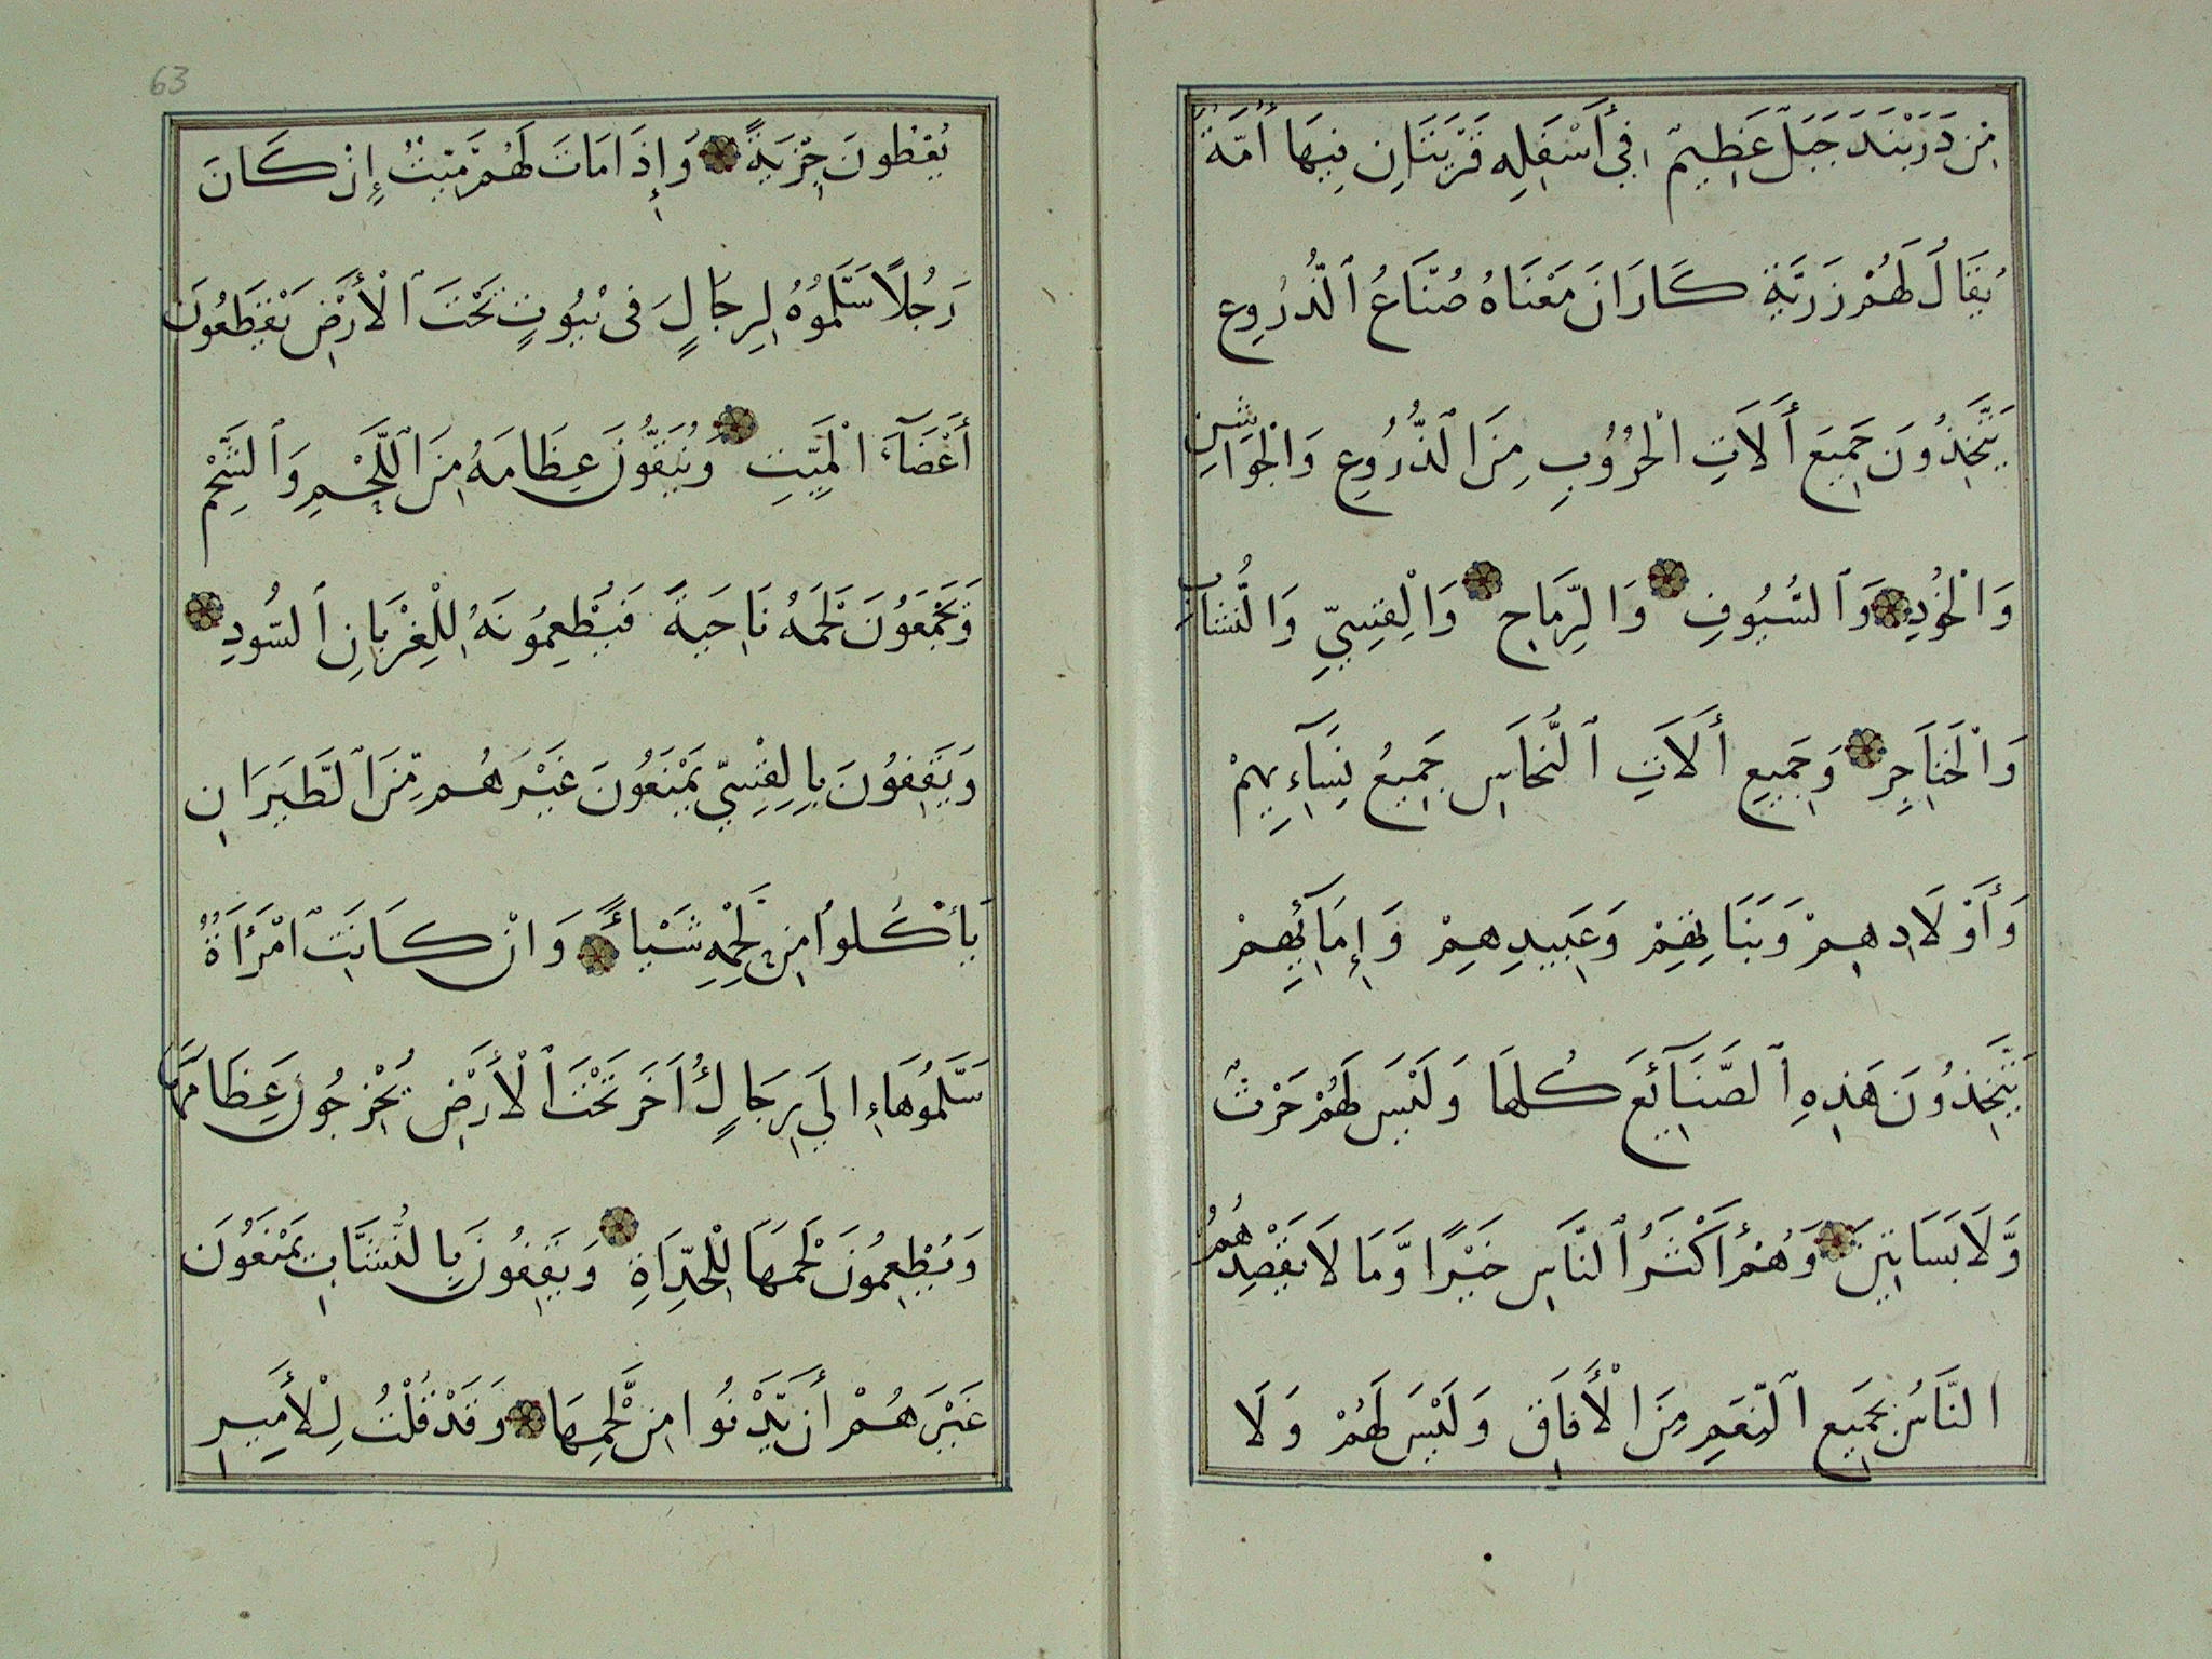 مِن دَرْبَنْدَ جَبَلٌ عَظِيمٌ فِي أَسْفَلِهِ قَرْيَتَانِ فِيهَا أُمَّةٌ
يُقَالُ لَهُمْ زَرِيَّةِ كَارَانَ مَعْنَاهُ صُنَّاعُ ٱلدُّرُوعِ
يَتَّخِذُونَ جَمِيعَ أَلَاتِ الْحُرُوبِ مِنَ الدُّرُوعِ وَالْجَوَاشِنِ
وَالْخُوَدِ وَٱلسُّيُوفِ وَالرِّمَاحِ وَالْقِسِيِّ وَالنُّشَّابِ
وَالْخَنَاجِرِ وَجَمِيعِ أَلَاتِ ٱلنُّحَاسِ جَمِيعُ نِسَآءِهِمْ
وَأَوْلَادِهِمْ وَبَنَاتِهِمْ وَعَبِيدِهِمْ وَإِمَآئِهِمْ
يَتَّخِذُونَ هَذِهِ ٱلصَّنَآئِعَ كُلَّهَا وَلَيْسَ لَهُمْ حَرْثٌ
وَّلَا بَسَاتِينَ وَهُمْ أَكْثَرُ ٱلنَّاسِ خَيْرًا وَّمَالًا يَقْصِدُهُمُ
النَّاسُ بِجَمِيعِ ٱلنِّعَمِ مِنَ الْأَفَاقِ وَلَيْسَ لَهُمْ وَلَا
63
يُعْطُونَ جِزْيَةً وَإِذَا مَاتَ لَهُمْ مَّيِّتٌ إِنْ كَانَ
رَجُلًا سَلَّمُوهُ لِرِجَالٍ فِى بُيُوتٍ تَحْتَ ٱلْأَرْضِ يَقْطَعُونَ
أَعْضَآءَ الْمَيِّتِ وَيُنَقُّونَ عِظَامَهُ مِنَ ٱللَّحْمِ وَٱلشَّحْمِ
وَيَجْمَعُونَ لَحْمَهُ نَاحِيَةً فَيُطْعِمُونَهُ لِلْغِرْبَانِ ٱلسُّودِ
وَيَقِفُونَ بِالْقِسِيِّ يَمْنَعُونَ غَيْرَهُمْ مِّنَ ٱلطَّيَرَانِ
يَأْكُلُوا مِنْ لَّحْمِهِ شَيْاءً وَانْ كَانَتِ ٱمْرَأَةٌ
سَلَّمُوهَا إِلَي رِجَالٍ أُخَرَ تَحْتَ ٱلْأَرْضِ يُخْرِجُونَ عِظَامَهَا
وَيُطْعِمُونَ لَحْمَهَا لِلْحِدَاةِ وَيَقِفُونَ بِالنُّشَّابِ يَمْنَعُونَ
غَيْرَهُمْ أَن يَّدْنُوا مِن لَّحْمِهَا وَقَدْ قُلْتُ لِلْأَمِيرِ